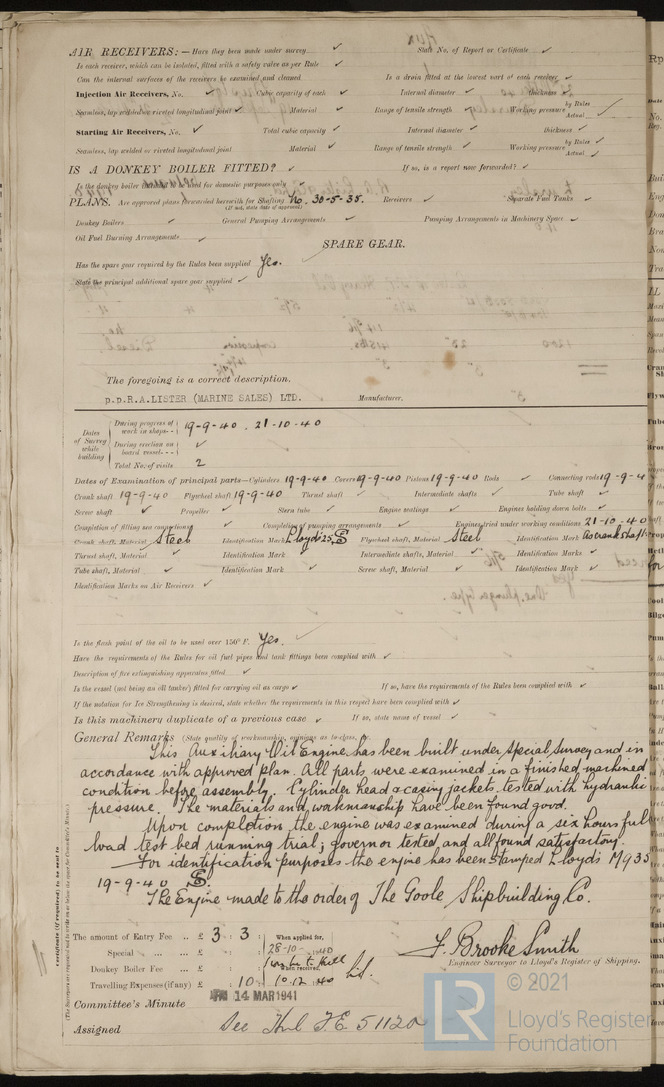 AIR RECEIVERS:— Have they been made under survey ✓ State No. of Report or Certificate ✓
Is each receiver, which can be isolated, fitted with a safety valve as per Rule ✓
Can the internal surfaces of the receivers be examined and cleaned Is a drain fitted at the lowest part of each receiver ✓
Injection Air Receivers, No. ✓ Cubic capacity of each ✓ Internal diameter ✓ thickness ✓
Seamless, lap welded or riveted longitudinal joint ✓ Material ✓ Range of tensile strength ✓ Working pressure by Rules Actual ✓
Starting Air Receivers, No. ✓ Total cubic capacity ✓ Internal diameter ✓ thickness ✓
Seamless, lap welded or riveted longitudinal joint Material ✓ Range of tensile strength ✓ Working pressure by Rules ✓ Actual ✓
IS A DONKEY BOILER FITTED? ✓ If so, is a report now forwarded? ✓
Is the donkey boiler intended to be used for domestic purposes only
PLANS. Are approved plans forwarded herewith for Shafting No. 30-5-35. Receivers ✓ Separate Fuel Tanks ✓
(If not, state date of approval)
Donkey Boilers ✓ General Pumping Arrangements ✓ Pumping Arrangements in Machinery Space ✓
Oil Fuel Burning Arrangements ✓
SPARE GEAR.
Has the spare gear required by the Rules been supplied Yes.
State the principal additional spare gear supplied ✓
The foregoing is a correct description.
p.p.R.A.LISTER (MARINE SALES) LTD. Manufacturer.
Dates of Survey while building
During progress of work in shops-- 19-9-40. 21-10-40
During erection on board vessel--- ✓
Total No. of visits 2
Dates of Examination of principal parts—Cylinders 19-9-40 Covers 19-9-40 Pistons 19-9-40 Rods ✓ Connecting rods 19-9-4
Crank shaft 19-9-40 Flywheel shaft 19-9-40 Thrust shaft ✓ Intermediate shafts ✓ Tube shaft ✓
Screw shaft ✓ Propeller ✓ Stern tube ✓ Engine seatings ✓ Engines holding down bolts ✓
Completion of fitting sea connections ✓ Completion of pumping arrangements ✓ Engines tried under working conditions 21-10-40
Crank shaft, Material Steel Identification Mark Lloyd's 25 Flywheel shaft, Material Steel Identification Mark As crankshaft
Thrust shaft, Material ✓ Identification Mark Intermediate shafts, Material ✓ Identification Marks ✓
Tube shaft, Material ✓ Identification Mark ✓ Screw shaft, Material ✓ Identification Mark ✓
Identification Marks on Air Receivers ✓
Is the flash point of the oil to be used over 150° F. Yes.
Have the requirements of the Rules for oil fuel pipes and tank fittings been complied with ✓
Description of fire extinguishing apparatus fitted ✓
Is the vessel (not being an oil tanker) fitted for carrying oil as cargo ✓ If so, have the requirements of the Rules been complied with ✓
If the notation for Ice Strengthening is desired, state whether the requirements in this respect have been complied with ✓
Is this machinery duplicate of a previous case ✓ If so, state name of vessel ✓
General Remarks (State quality of workmanship, opinions as to class, &c.
This Auxiliary Oil Engine has been built under special survey and in
accordance with approved plan. All parts were examined in a finished machined
condition before assembly. Cylinder head & casing jackets tested with hydraulic
pressure. The materials and workmanship have been found good.
Upon completion the engine was examined during a six hours full
load test bed running trial, governor tested and all found satisfactory.
For identification purposes the engine has been stamped Lloyd's M935
19-9-40
The Engine made to the order of The Goole Shipbuilding Co.
The amount of Entry Fee .. £ 3 : 3 : When applied for,
Special ... ... £ : : 28-10-1940
Donkey Boiler Fee ... £ : : When received,
Travelling Expenses (if any) £ : 10 : 10.12.40
F. Brooke Smith
Engineer Surveyor to Lloyd's Register of Shipping.
Committee's Minute 14 MAR 1941
Assigned See Hul F.E. 51120
© 2021
LR
Lloyd's Register
Foundation